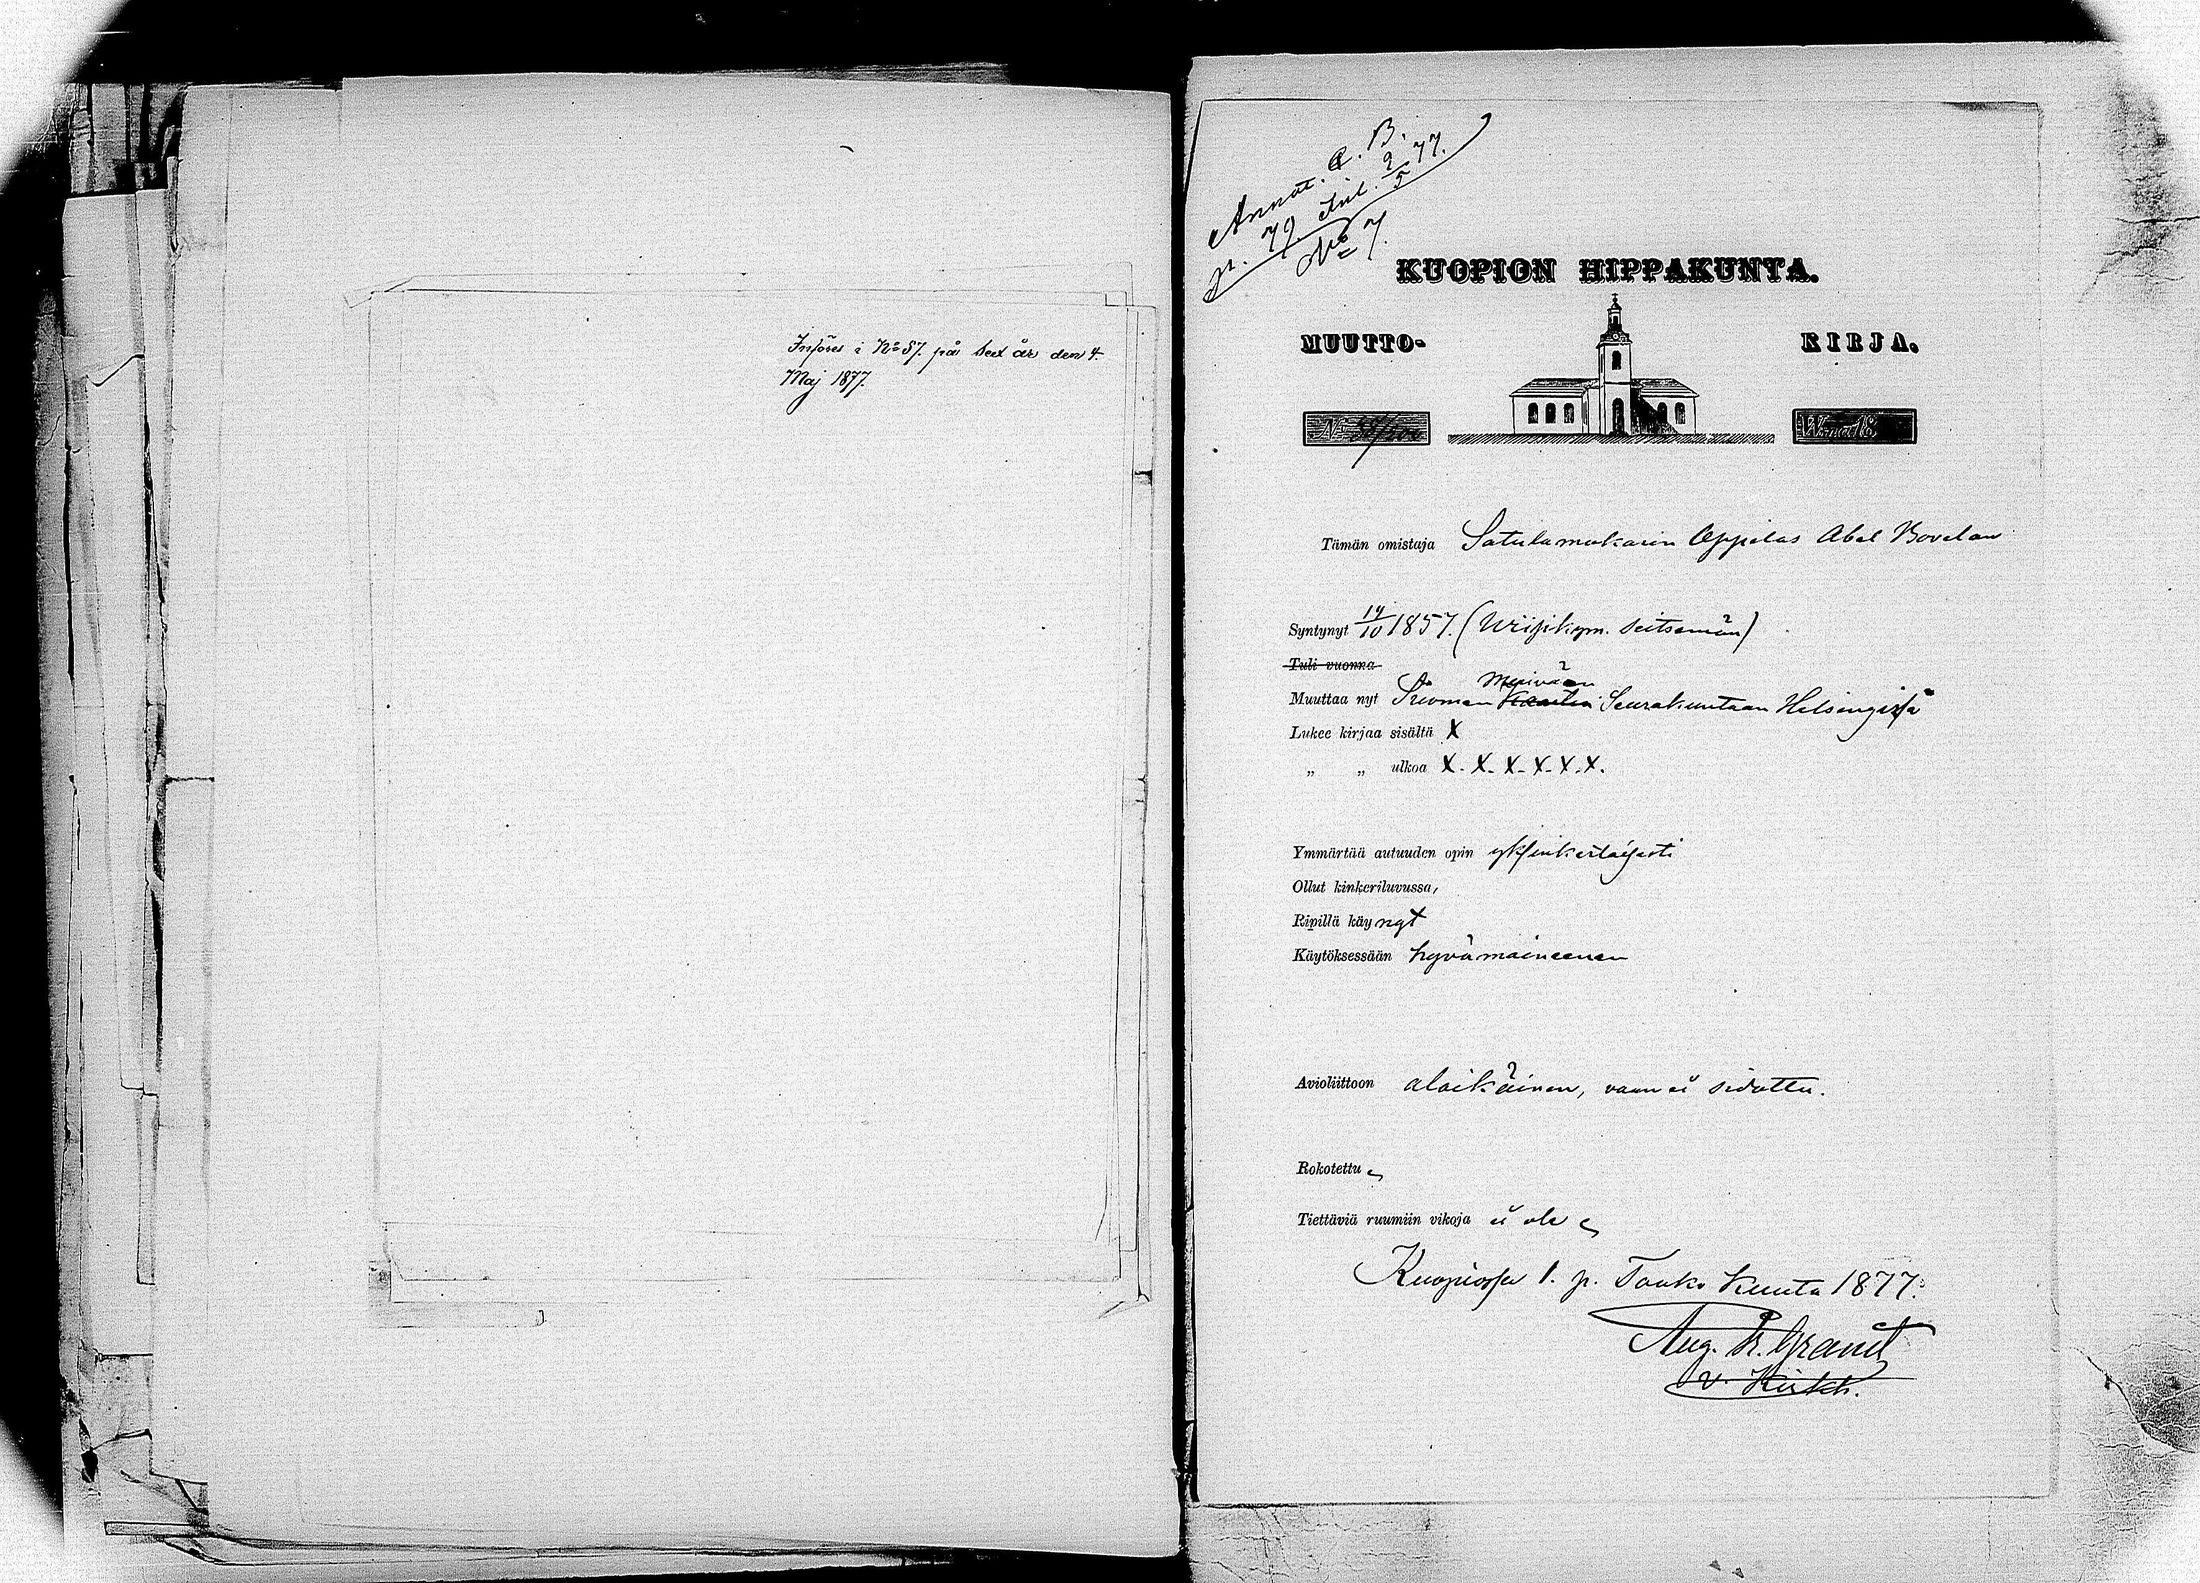 Införes i No 57. på sext år den 4.
Maj 1877.
Annot. A. B.
p. 79. Jnl. 2/5 77.
No 7.
KUOPION HIPPAKUNTA.
MUUTTO- KIRJA.
No W:na 18
Tämän omistaja Satulamakarin Oppilas Abel Bovelan
Syntynyt 14/10 1857. (Wiisikym. seitsemän)
Tuli vuonna
Meriväen
Muuttaa nyt Suomen Kaartin Seurakuntaan Helsingissä
Lukee kirjaa sisältä X
„ „ ulkoa X. X. X. X. X. X.
Ymmärtää autuuden opin yksinkertaisesti
Ollut kinkeriluvussa,
Ripillä käynyt
Käytöksessään hyvämaineenen
Avioliittoon alaikäinen, vaan ei sidottu.
Rokotettu
Tiettäviä ruumiin vikoja ei ole
Kuopiossa 1. p. Touko kuuta 1877.
Aug. R. Granit
v. Kirkh.